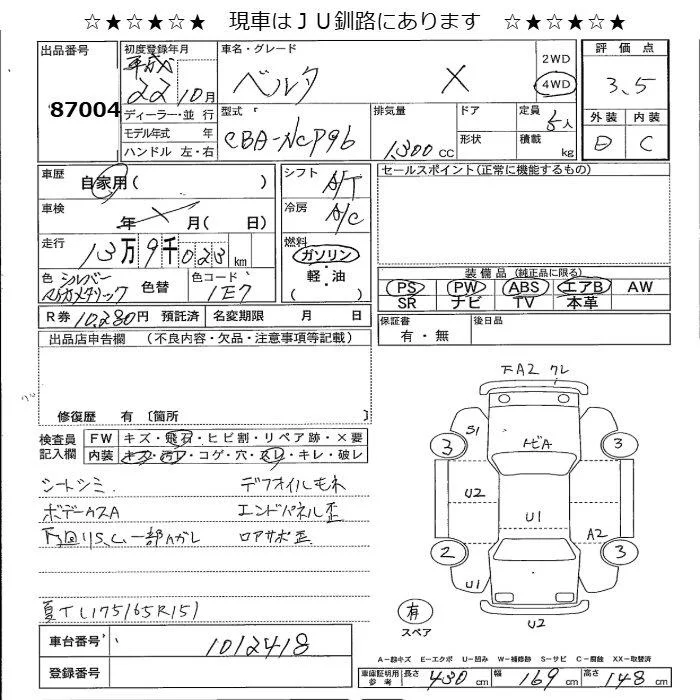 ☆★☆★☆★ 現車はＪＵ釧路にあります ☆★☆★☆★
出品番号
87004
初度登録年月
平成
22 10月
ディーラー・並 行
モデル年式 年
ハンドル 左・右
車名・グレード
ベルタ X
2WD
4WD
型式
CBA-NCP96
排気量
1,300 CC
ドア
形状
定員
5人
積載
kg
評 価 点
3.5
外 装 内 装
D C
車歴
自家用( )
車検
年 月( 日)
走行
13万9千023km
色 シルバー
マイカメタリック
色替
色コード
1E7
シフト
A/T
冷房
A/C
燃料
ガソリン
軽・油
( )
セールスポイント(正常に機能するもの)
装 備 品 (純正品に限る)
PS PW ABS エアB AW
SR ナビ TV 本革
R券 10,280円 預託済 名変期限 月 日
保証書
有・無
後日品
出品店申告欄 (不良内容・欠品・注意事項等記載)
修復歴 有〔箇所 〕
検査員
記入欄
FW キズ・飛石・ヒビ割・リペア跡・×要
内装 キズ・汚レ・コゲ・穴・スレ・キレ・破レ
シートシミ. デフオイルモレ
ボデーカスA エンドパネル歪
下回りS,C,一部Aガレ ロアサポ歪
夏T(175/65R15)
下A2 ワレ
S1
3
3
トビA
U2
U1
A2
2
3
U1
U2
有
スペア
車台番号
1012418
登録番号
A－線キズ E－エクボ U－凹み W－補修跡 S－サビ C－腐蝕 XX－取替済
車庫証明用
参 考
長さ 430 cm 幅 169 cm 高さ 148 cm